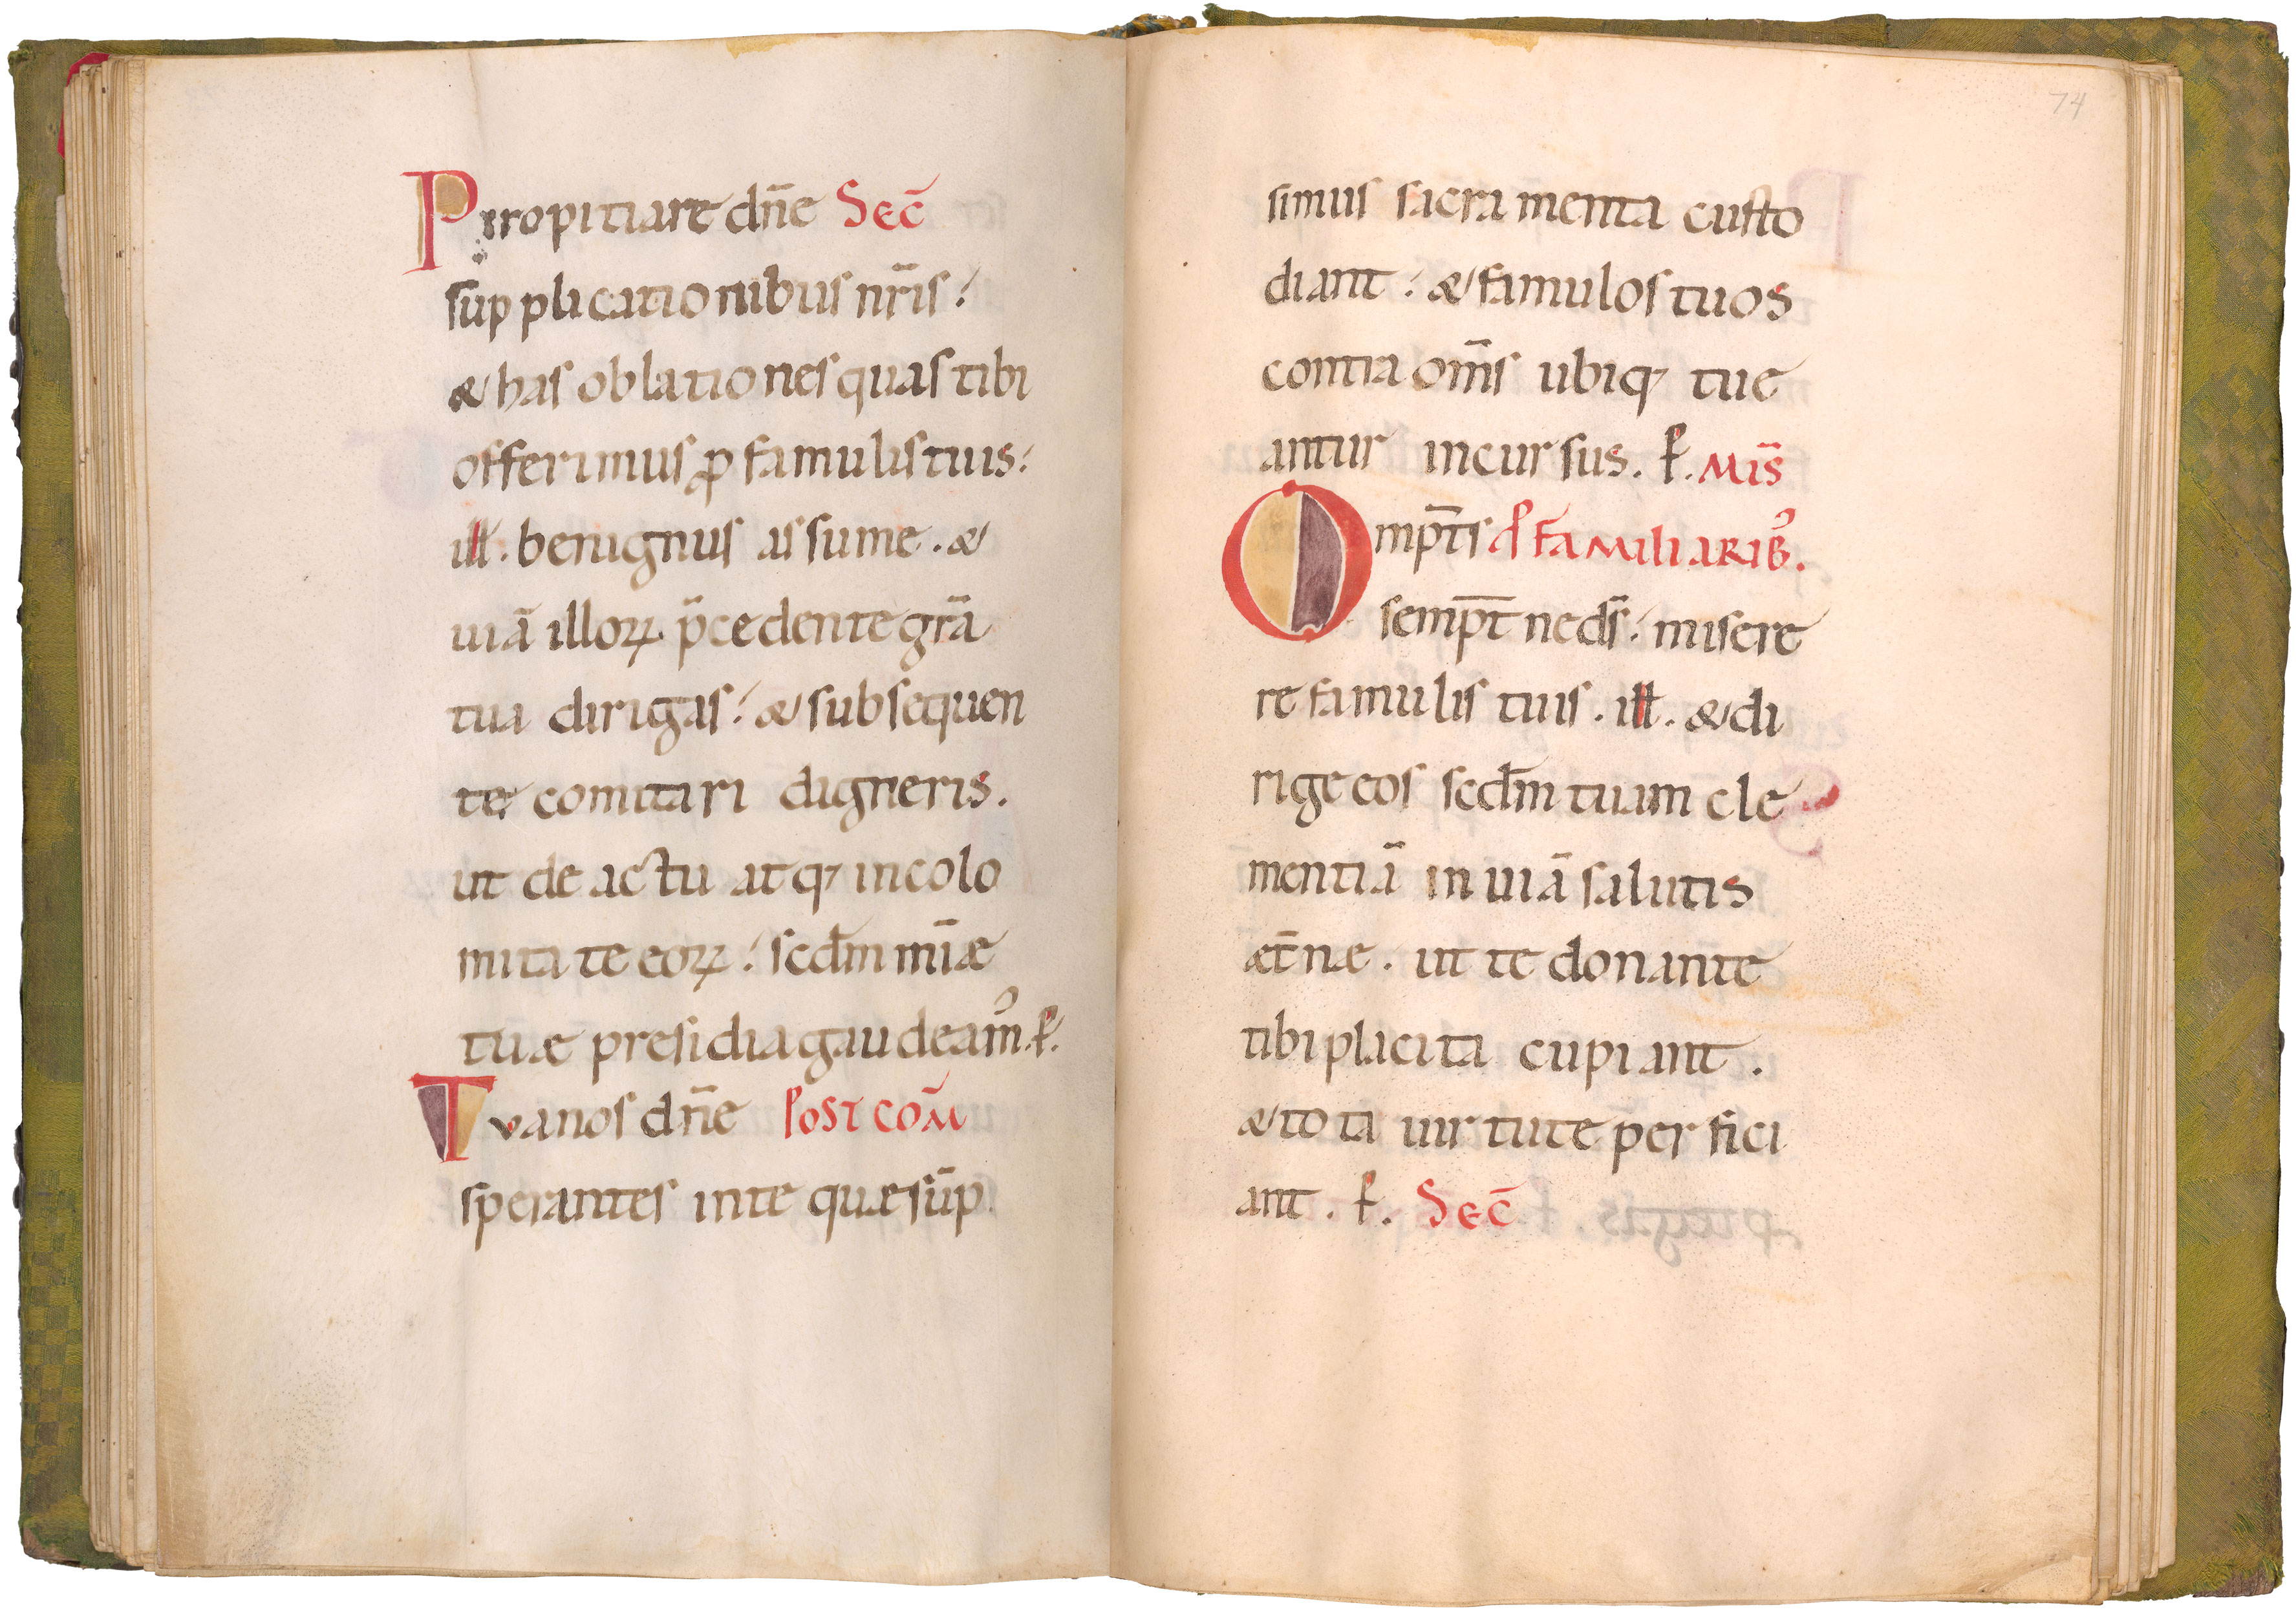 Propitiare dn̄e Sec̄
supplicationibus nr̄is:
& has oblationes quas tibi
offerimus ꝓ famulis tuis:
ill. benignus assume. &
uiā illoꝝ p̄cedente gr̄a
tua dirigas: & subsequen
te comitari digneris.
ut de actu atq; incolo
mitate eoꝝ: scdm̄ mīæ
tuæ presidia gaudeam᷒. ꝑ.
Tua nos dn̄e Post com̄
sperantes in te quæ sūp
74
simus sacramenta custo
diant: & famulos tuos
contra om̄s ubiq; tue
antur incursus. ꝑ. Mis̄
Omp̄ts ꝓ familiarib᷒.
semp̄t ne ds̄: misere
re famulis tuis. ill. & di
rige eos scdm̄ tuam cle
mentiā in uiā salutis
æt̄næ. ut te donante
tibi placita cupiant.
& tota uirtute perfici
ant. ꝑ. Sec̄